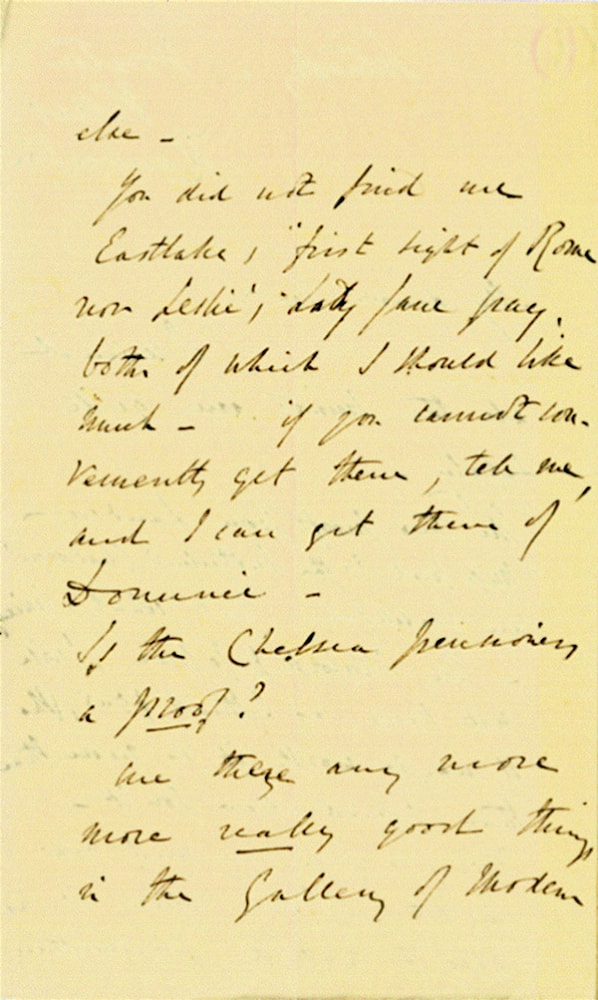 else -
You did not find me
Eastlake's "first sight of Rome
nor Leslie's "Lady Jane Gray,
both of which I should like
much - if you cannot con-
veniently get them, tell me,
and I can get them of
Dominic -
Is the Chelsea Pensioners
a proof?
are there any more
more really good things
in the Gallery of Modern